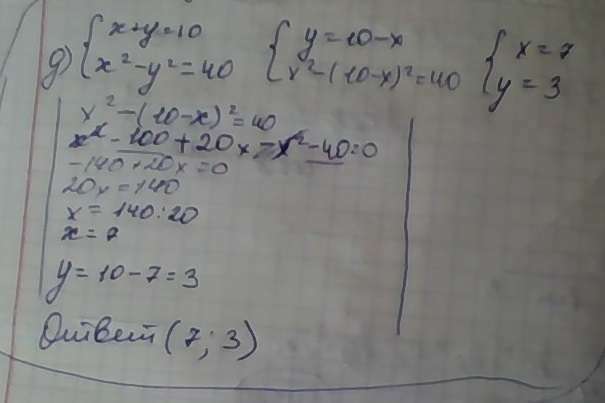 д) { x+y=10 { y=10-x { x=7
x²-y²=40 x²-(10-x)²=40 y=3
x²-(10-x)²=40
x²-100+20x-x²-40=0
-140+20x=0
20x=140
x=140:20
x=7
y=10-7=3
Ответ (7; 3)